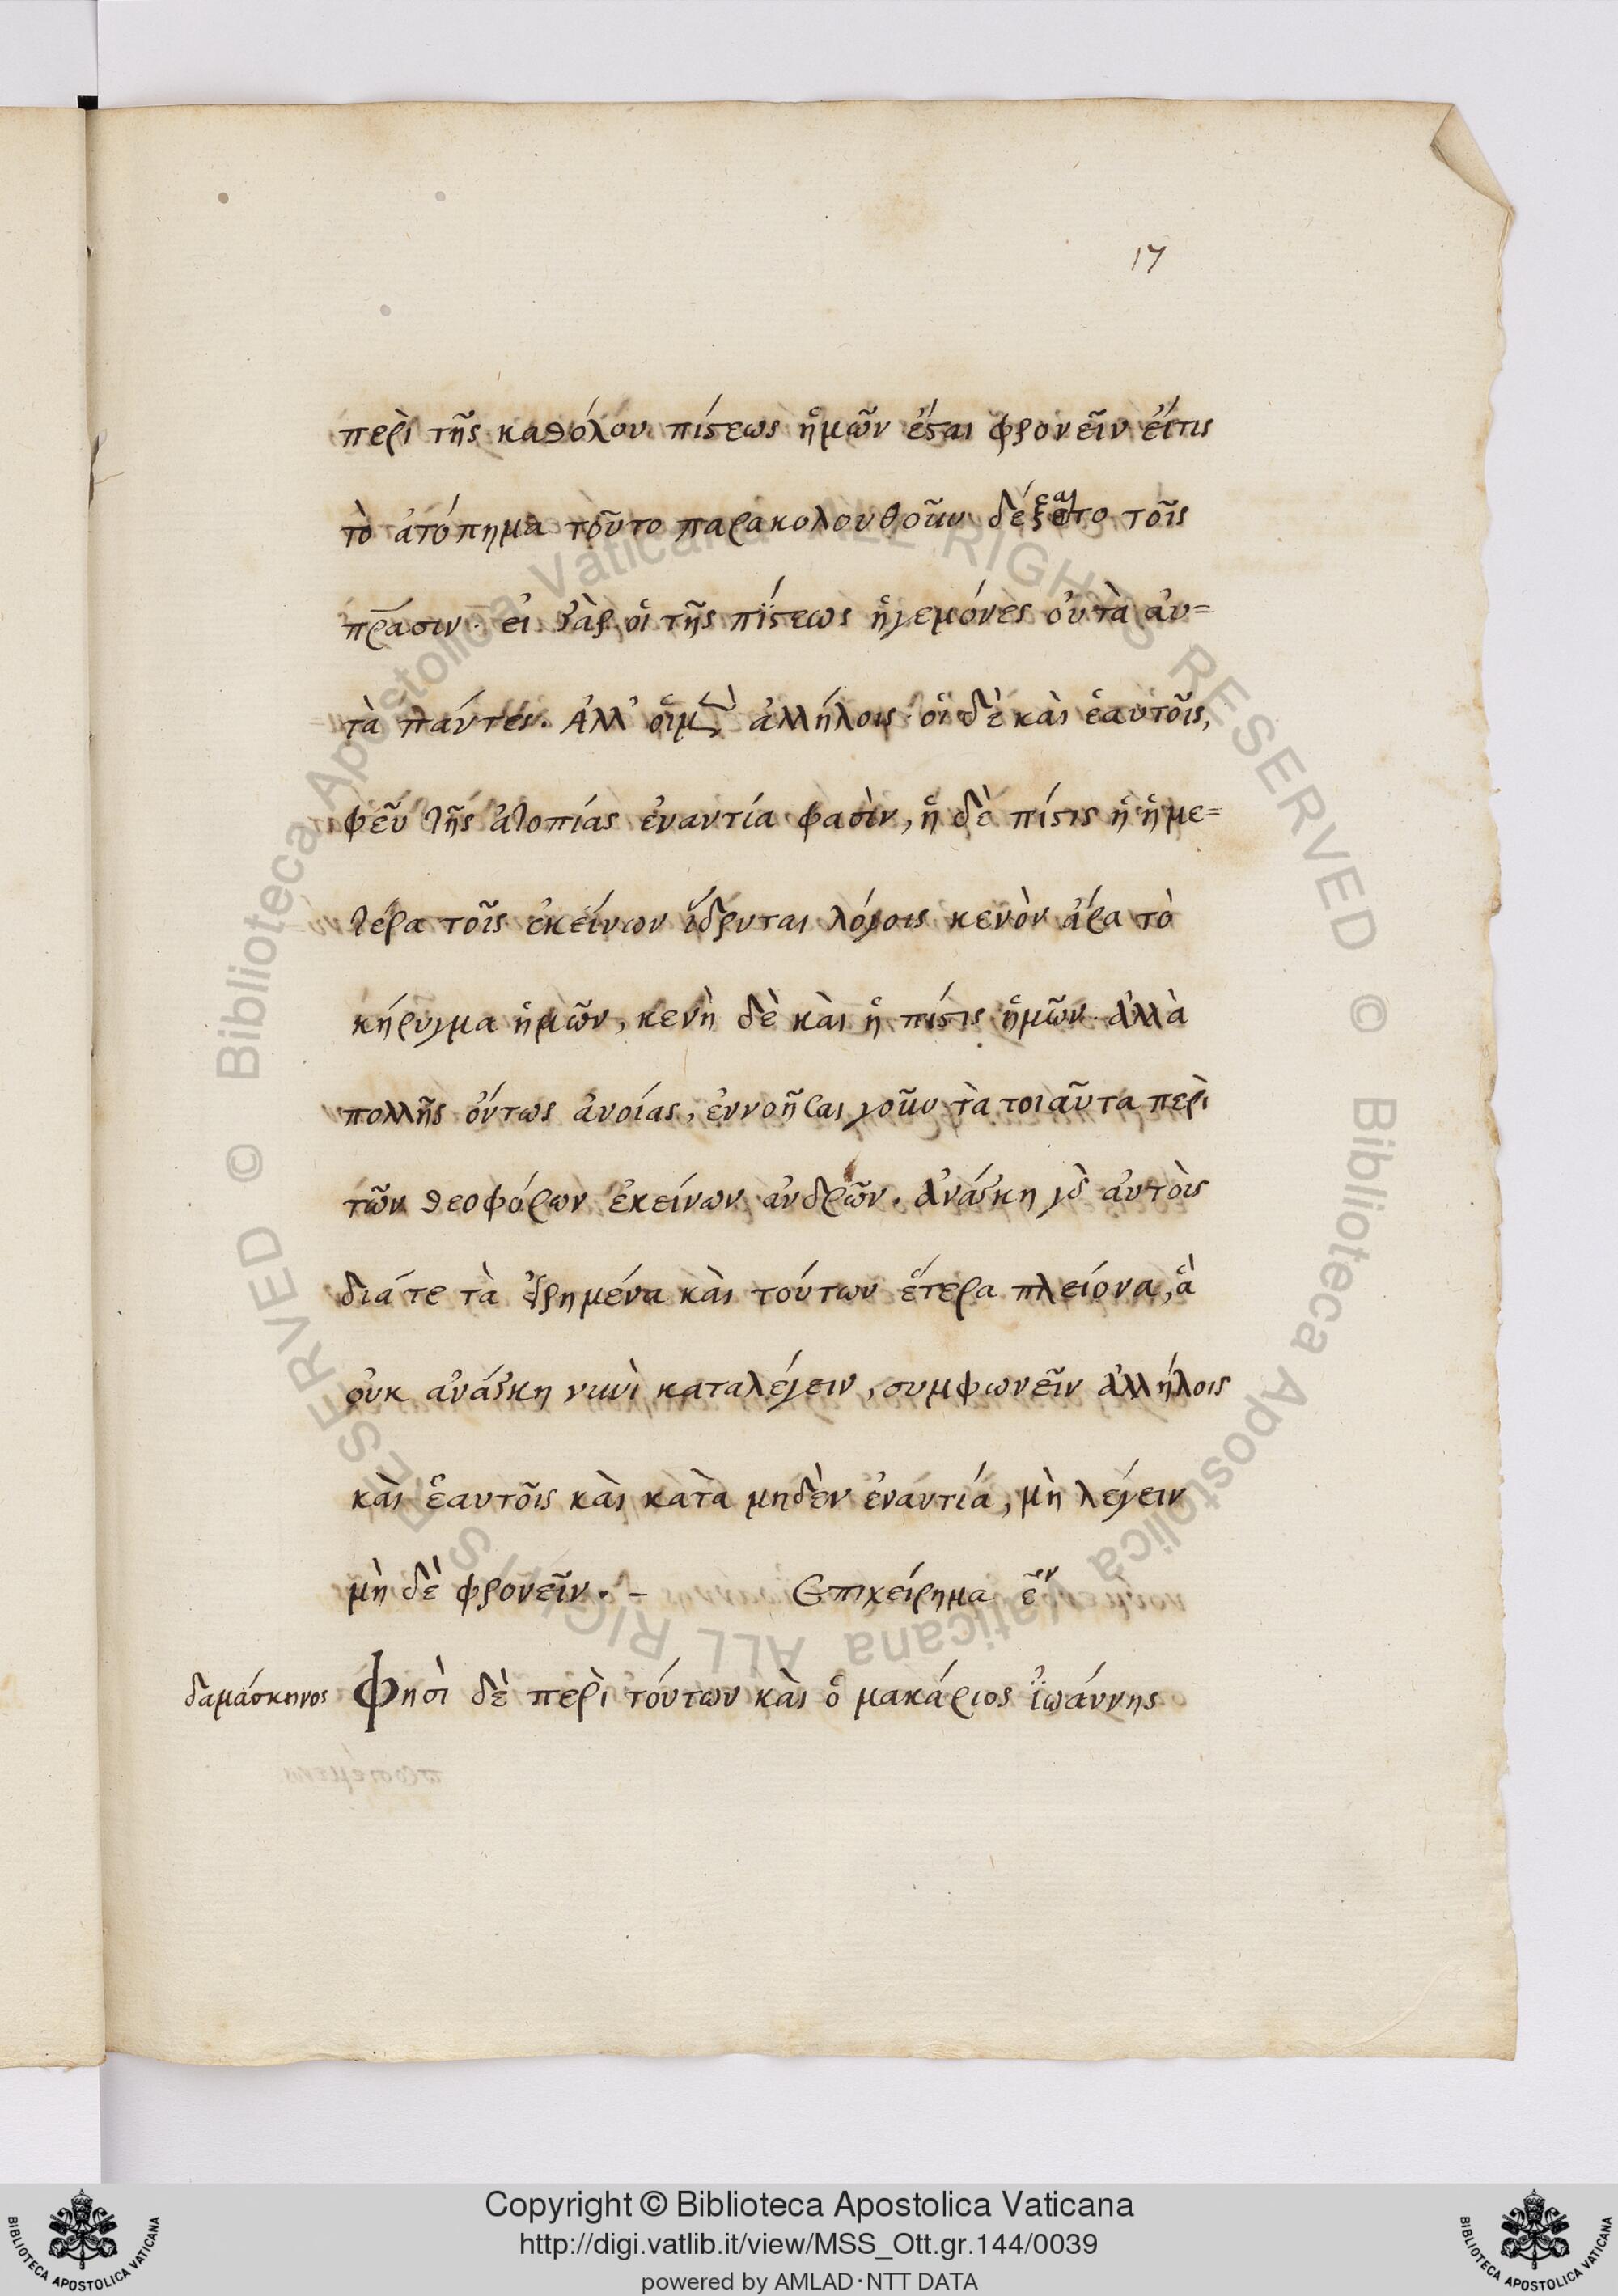 17
περὶ τῆς καθόλου πίστεως ἡμῶν ἔσται φρονεῖν εἴτις
τὸ ἀτόπημα τοῦτο παρακολουθοῦν τοῖς
πράσιν· εἰ γὰρ οἱ τῆς πίστεως ἡγεμόνες οὐ τὰ αὐ=
τὰ πάντες. Ἀλλ' οἱ μὲν ἀλλήλοις· οἱ δὲ καὶ ἑαυτοῖς,
φεῦ τῆς ἀτοπίας ἐναντία φασὶν, ἡ δὲ πίστις ἡ ἡμε=
τέρα τοῖς ἐκείνων ἵδρυται λόγοις κενὸν ἄρα τὸ
κήρυγμα ἡμῶν, κενὴ δὲ καὶ ἡ πίστις ἡμῶν. ἀλλὰ
πολλῆς ὄντως ἀνοίας, ἐννοῆσαι γοῦν τὰ τοιαῦτα περὶ
τῶν θεοφόρων ἐκείνων ἀνδρῶν. ἀνάγκη γὰρ αὐτοὶς
διάτε τὰ εἰρημένα καὶ τούτων ἕτερα πλείονα, ἃ
οὐκ ἀνάγκη νυνὶ καταλέγειν, συμφωνεῖν ἀλλήλοις
καὶ ἑαυτοῖς καὶ κατὰ μηδὲν ἐναντία, μὴ λέγειν
μὴ δὲ φρονεῖν. – Επιχείρημα ἓν
δαμάσκηνος Φησὶ δὲ περὶ τούτων καὶ ὁ μακάριος ἰωάννης
© Biblioteca Apostolica Vaticana ALL RIGHTS RESERVED © Biblioteca Apostolica Vaticana ALL RIGHTS RESERVED
Copyright © Biblioteca Apostolica Vaticana
http://digi.vatlib.it/view/MSS_Ott.gr.144/0039
powered by AMLAD·NTT DATA
BIBLIOTECA APOSTOLICA VATICANA
BIBLIOTECA APOSTOLICA VATICANA